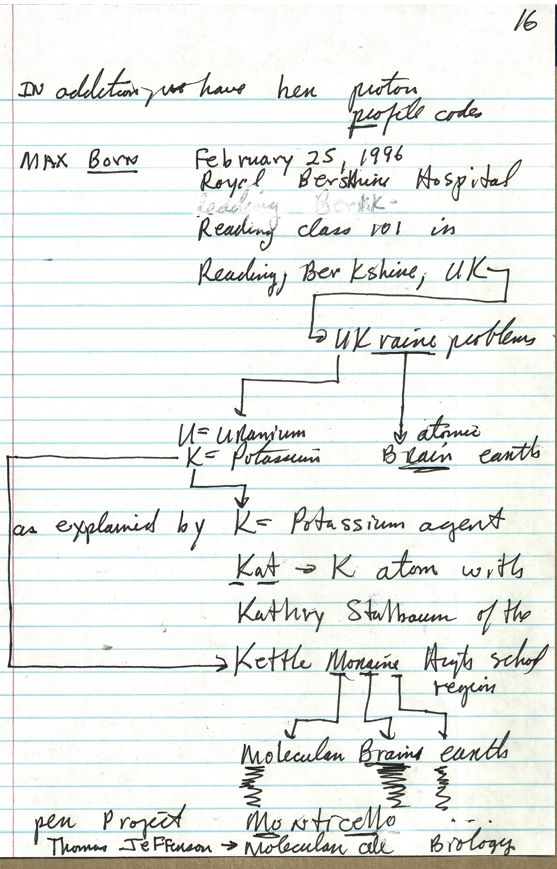 16
IN addition, we have hen proton
profile codes
MAX Born February 25, 1996
Royal Berkshire Hospital
Reading Berkk-
Reading class 101 in
Reading, Berkshire, UK
UKraine problems
U= Uranium atomic
K= Potassium BRain earth
as explained by K= Potassium agent
Kat → K atom with
Kathry Stalbaum of the
Kettle Moraine High school
region
Molecular Brains earth
pen Project Monticello ...
Thomas Jefferson → Molecular cell Biology